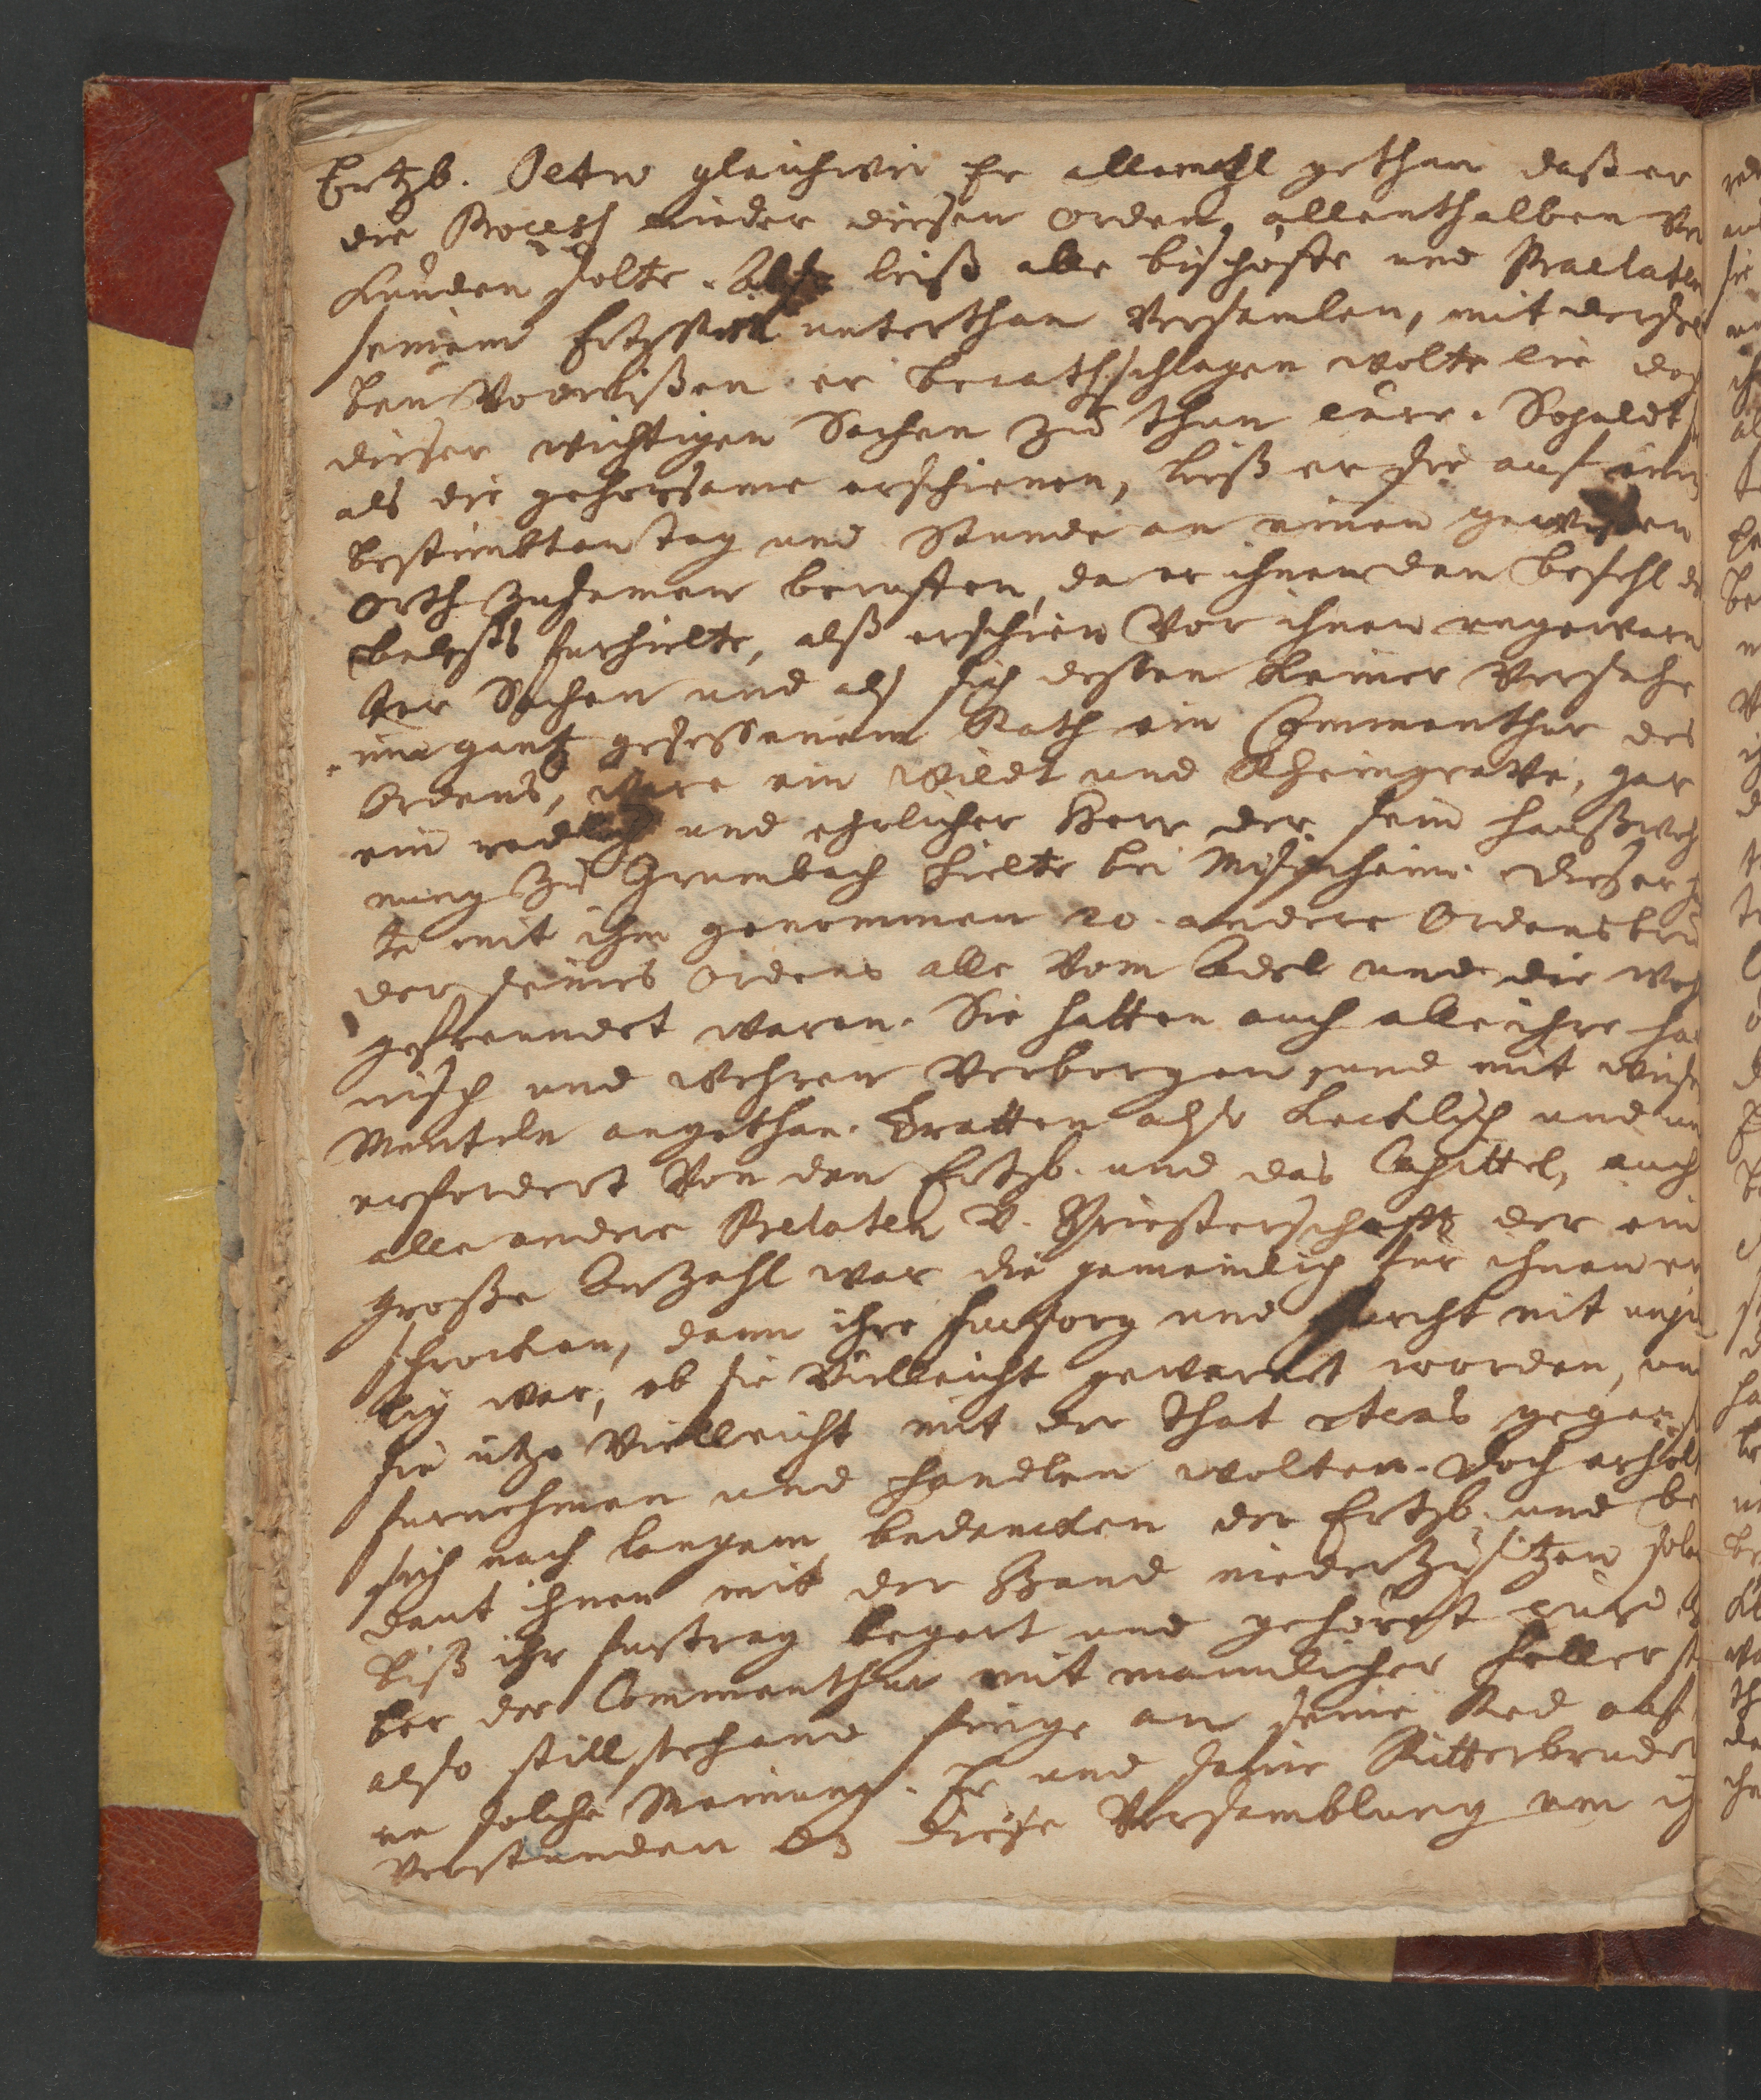 Ertzb. Petro gleichwie Er allemahl gethan daß er
die Process wieder diesen Orden, allenthalben ver
kunden solte. Also ließ alle bischoffe und Praelaten
seinem Ertzstifft unterthan versamlen, mit dersel
ben Vorwißen er berathschlagen wolte wie doch
dieser wichtigen Sachen zu thun were. Sobaldt
als die gehorsame erschienen, ließ er sie auf einen
bestimbten tag und Stunde an einen gewißen
Orth zusamen beruffen, da er ihnen den befehl des
babests furhielte, alß erschien vor ihnen ungewarn
ter Sachen und als sich deßen keiner versahe
im gantz gesessenem Rath ein Commenthur des
Ordens, ware ein Wildt und Rheingrave, gar
ein redlich und ehrlicher Herr der sein haußwoh
nung zu Grumbach hielte bei Meisenheim. Dieser hat
te mit ihm genommen 20. andere Ordensbru
der seines Ordens alle vom Adel und die wohl
gefreundet waren. Sie hatten auch alle ihre har
nisch und wehren verborgen, und mit weise
Menteln angethan. Tratten also kecklich und un
erfordert vor den Ertzb. und das Capittel, auch
alle andere Prelaten v. Priesterschafft der ein
große Anzahl war die gemeinlich fur ihnen er
schrocken, dann ihre fursorg und furcht nit unbil
lig war, ob sie villeicht gewarnet worden, und
sie itzo Vielleicht mit der That etwas gegen sie
furnehmen und handlen wolten. Doch erholt
sich nach langem bedencken der Ertzb. und be
deut ihnen mit der Hand niederzusitzen solang
biß ihr furtrag begert und gehöret wurde
ber der Commenthur mit mannlicher heller sti
also still stehend finge an seine Red auf
ne solche Meinung. Er und seine Ritterbruder
verstunden dz diese Versamblung um ih